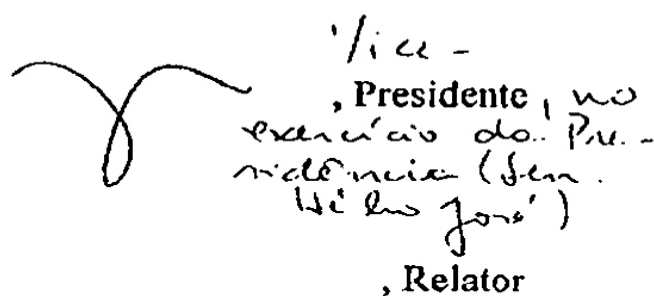 Vice -
, Presidente, no
exercício da Pre-
sidência (Sen.
Hélio José)
, Relator